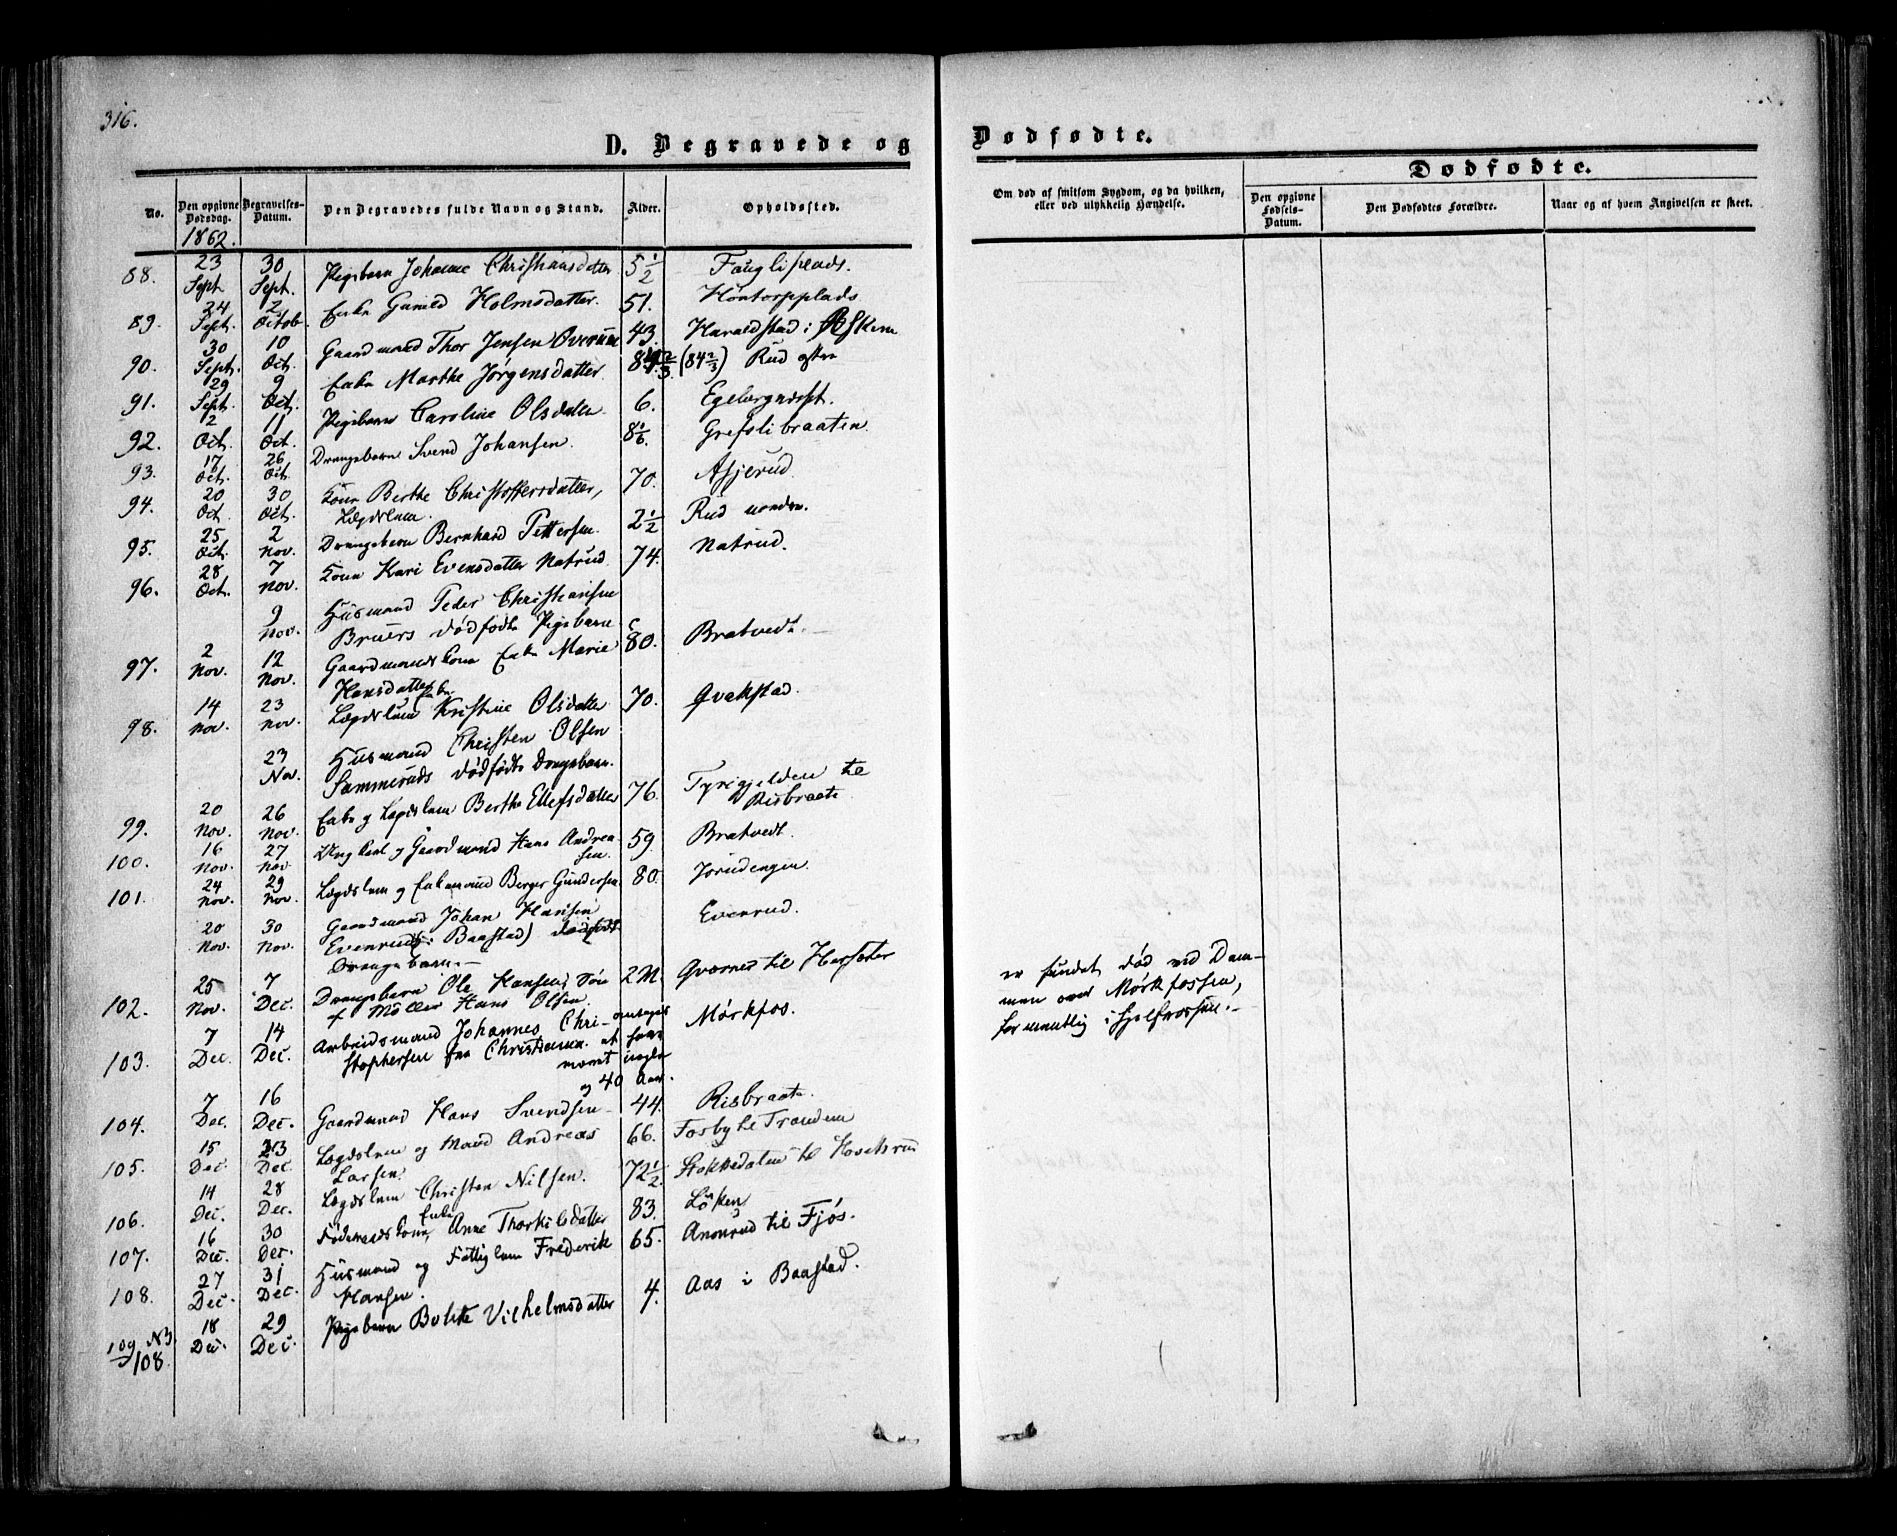 316.
D. Begravede og
Dødfødte.
No.
Den opgivne Dødsdag.
Begravelses-Datum.
Den Begravedes fulde Navn og Stand.
Alder.
Opholdssted.
Om død af smitsom Sygdom, og da hvilken, eller ved ulykkelig Hændelse.
Dødfødte.
Den opgivne Fødsels-Datum.
Den Dødfødtes Forældre.
Naar og af hvem Angivelsen er skeet.
1862.
88. 23 Sept 30 Sept. Pigebarn Johanne Christiansdatter 5 1/2 Fouglsplads.
89. 24 Sept. 2 Octob Enke Gunild Holmsdatter. 51. Hontorpplads
90. 30 Sept. 10 Oct. Gaardmand Thor Jensen 43. Haraldstad i Askim
91. 29 Sept. 9 Oct. Enke Marthe Jörgensdatter (84 2/3) Rud østre
92. 2 Oct. 11 Oct. Pigebarn Caroline Olsdatter 6.
93. 17 Oct. 26 Oct. Drengebarn Svend Johansen. 8 1/6. Grefslibraaten.
94. 20 Oct. 30 Oct. Kone Berthe Christoffersdatter, 70. Asjerud
Lægdslem.
95. 25 Oct. 2 Nov. Drengebarn Bernhard Pettersen. 2 1/2 Rud nordre.
96. 28 Oct. 7 Nov. Kone Kari Evensdatter Natrud 74. Natrud.
9 Nov. Husmand Peder Christiansen
Bruers dödfödte Pigebarn
97. 2 Nov. 12 Nov. Gaardmandskone Enke Marie 80. Bratvedt.
Hansdatter
98. 14 Nov. 23 Nov. Lægdslem Kristine Olsdatter 70. Qvakstad.
23 Nov. Husmand Christen Olsen
Sammeruds dödfödte Drengebarn.
99. 20 Nov. 26 Nov. Enke og Lægdslem Berthe Ellefsdatter 76. Tyrigjelden til
Risbraate
100. 16 Nov. 27 Nov Ungkarl og Gaardmand Hans Andrea- 59 Bratvedt.
sen.
101. 24 Nov. 29 Nov. Lægdslem og Enkemand Berger Gundersen 80. Jorudengen.
20 Nov. 30 Nov. Gaardmand Johan Hansen Evenrud.
Evenruds (i Baastad) dödfödt
Drengebarn.
102. 25 Nov. 7 Dec. Drengebarn Ole Hansen, Sön 2 M. Qværnes til Hersæter
af Möller Hans Olsen.
103. 7 Dec. 14 Dec. Arbeidsmand Johannes Chri- antages Mörkfos.
stophersen fra Christiania. at have
været nogle
og 40 Aar.
er fundet död ved Dam-
men over Mörkfossen,
formentlig i
104. 7 Dec. 16 Dec. Gaardmand Hans Svendsen 44. Risbraate.
105. 15 Dec. 23 Dec. Lægdslem og Mand Andreas 66. Fosby til Trandem
Larsen.
106. 14 Dec. 28 Dec. Lægdslem Christen Nilsen. 72 1/2. Stokkedalen til
107. 16 Dec. 30 Dec. Föderaadskone, Enke Anne Thorkilsdatter 83. Löken
108. 27 Dec. 31 Dec. Husmand og Fattiglem Frederik 65. Anonrud til Fjös.
Hansen.
109 N3 108. 18 Dec. 29 Dec. Pigebarn Bolette Vilhelmsdatter 4. Aas i Baastad.